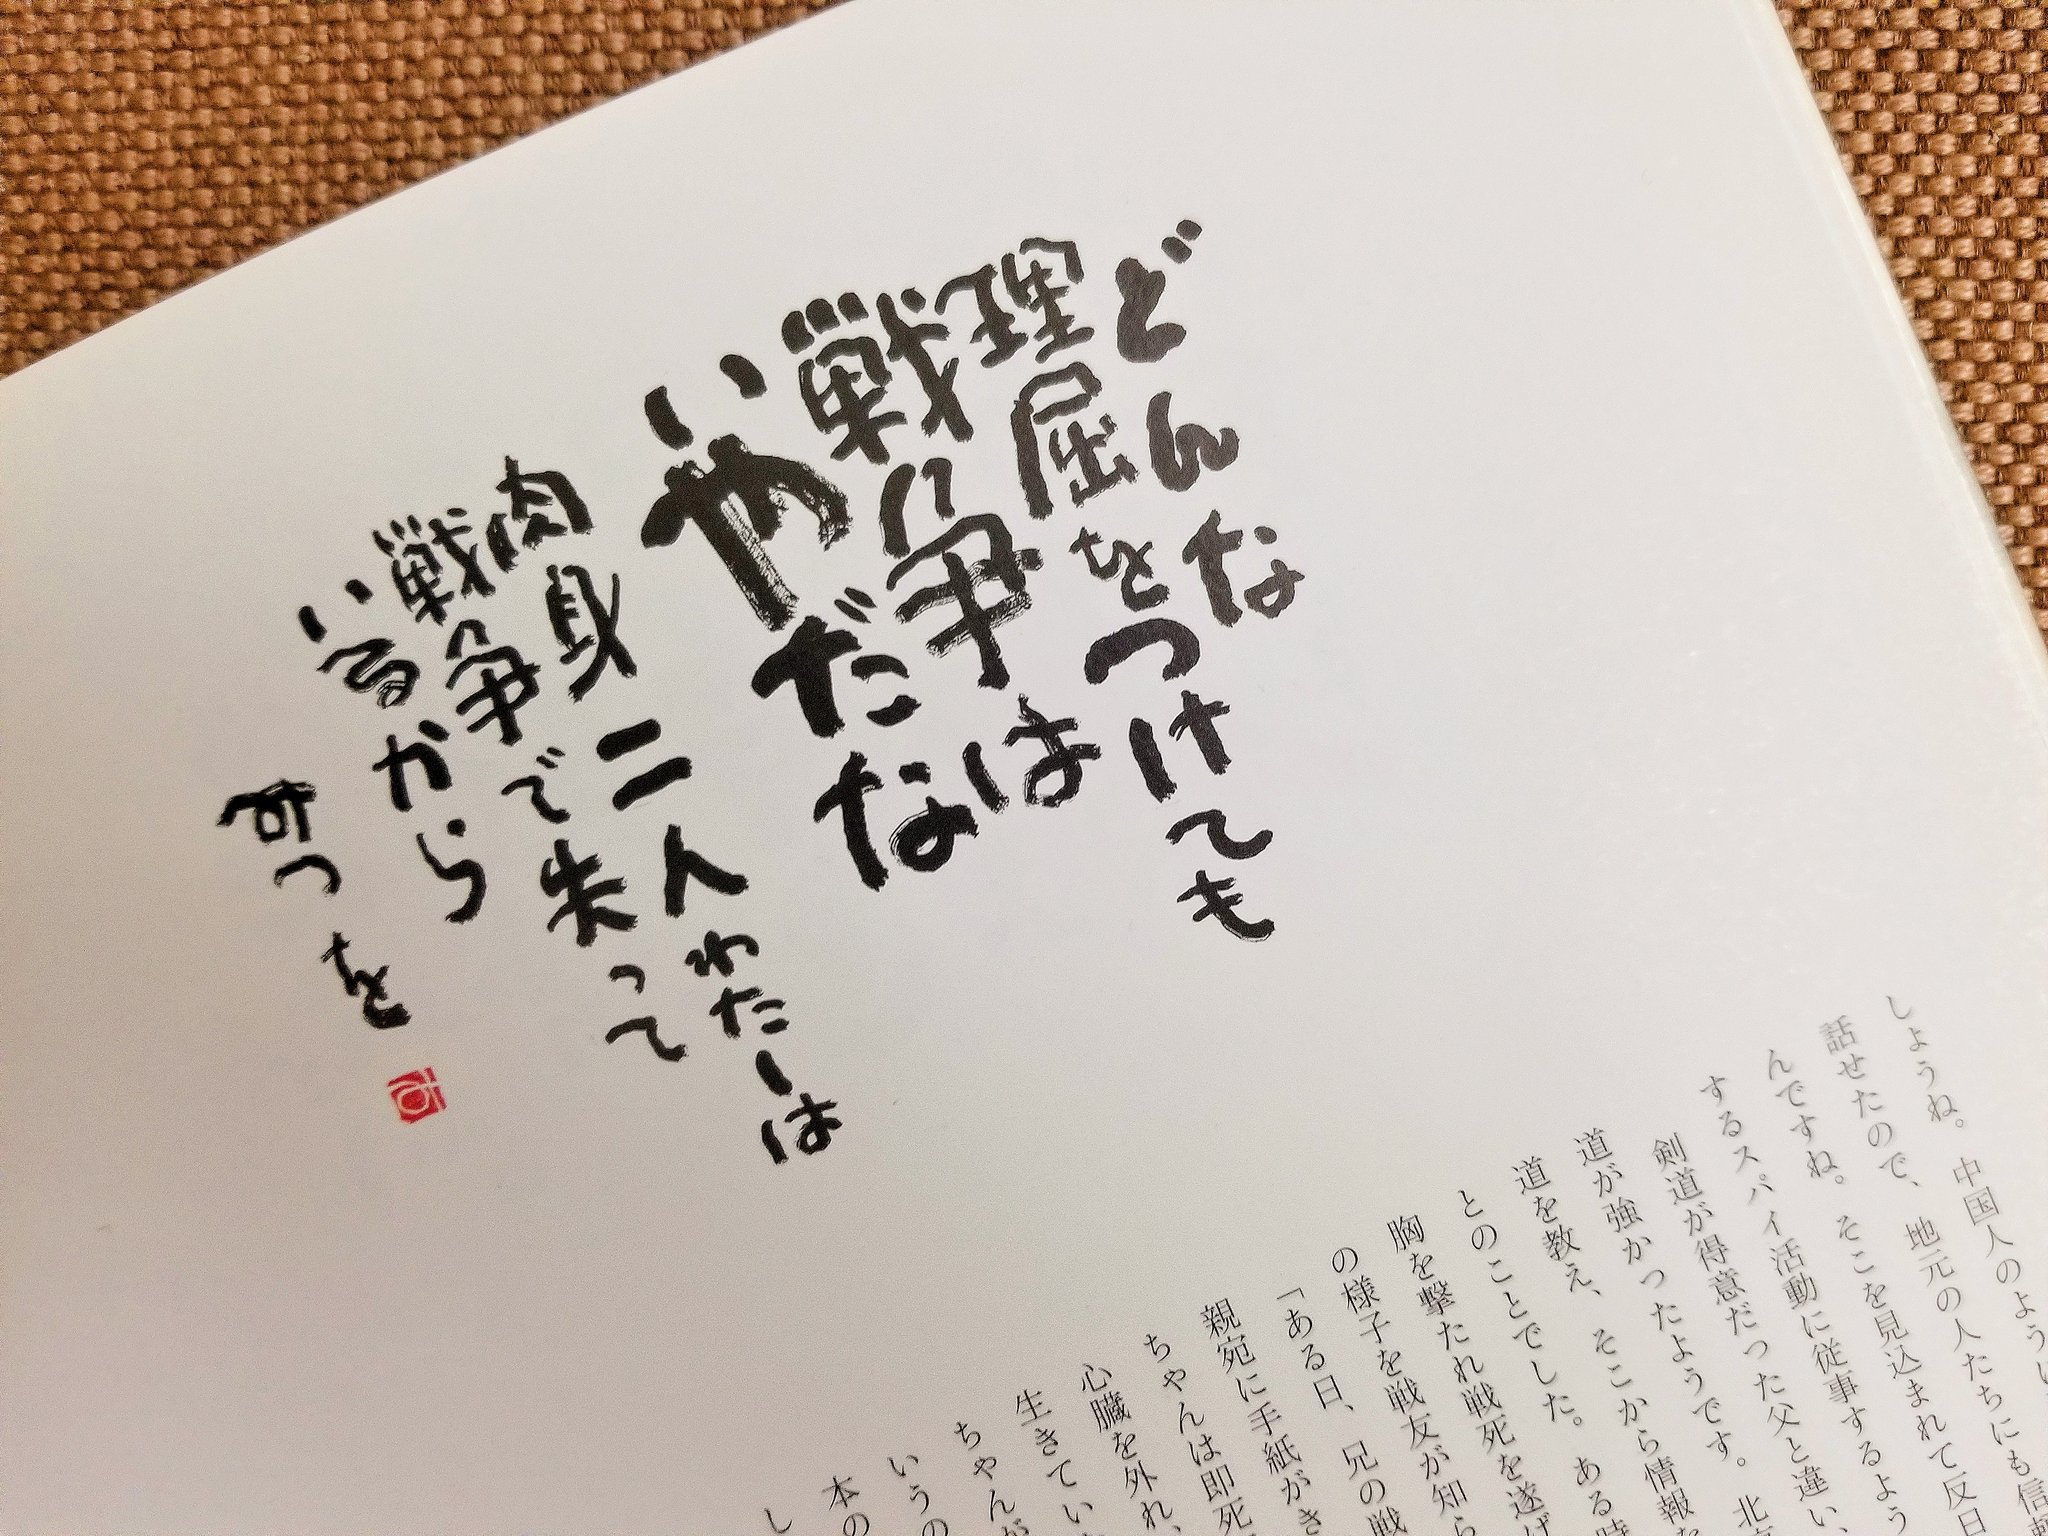 どんな
理屈をつけても
戦争は
いやだな
肉身二人わたしは
戦争で失って
いるから
みつを
しょうね。中国人のように
話せたので、地元の人たちにも信頼
んですね。そこを見込まれて反日
するスパイ活動に従事するよう
剣道が得意だった父と違い、
道が強かったようです。北
道を教え、そこから情報を
とのことでした。ある時
胸を撃たれ戦死を遂げ
の様子を戦友が知ら
「ある日、兄の戦
親宛に手紙がき
ちゃんは即死
心臓を外れ、
生きてい
ちゃんが
いうの
本の
し